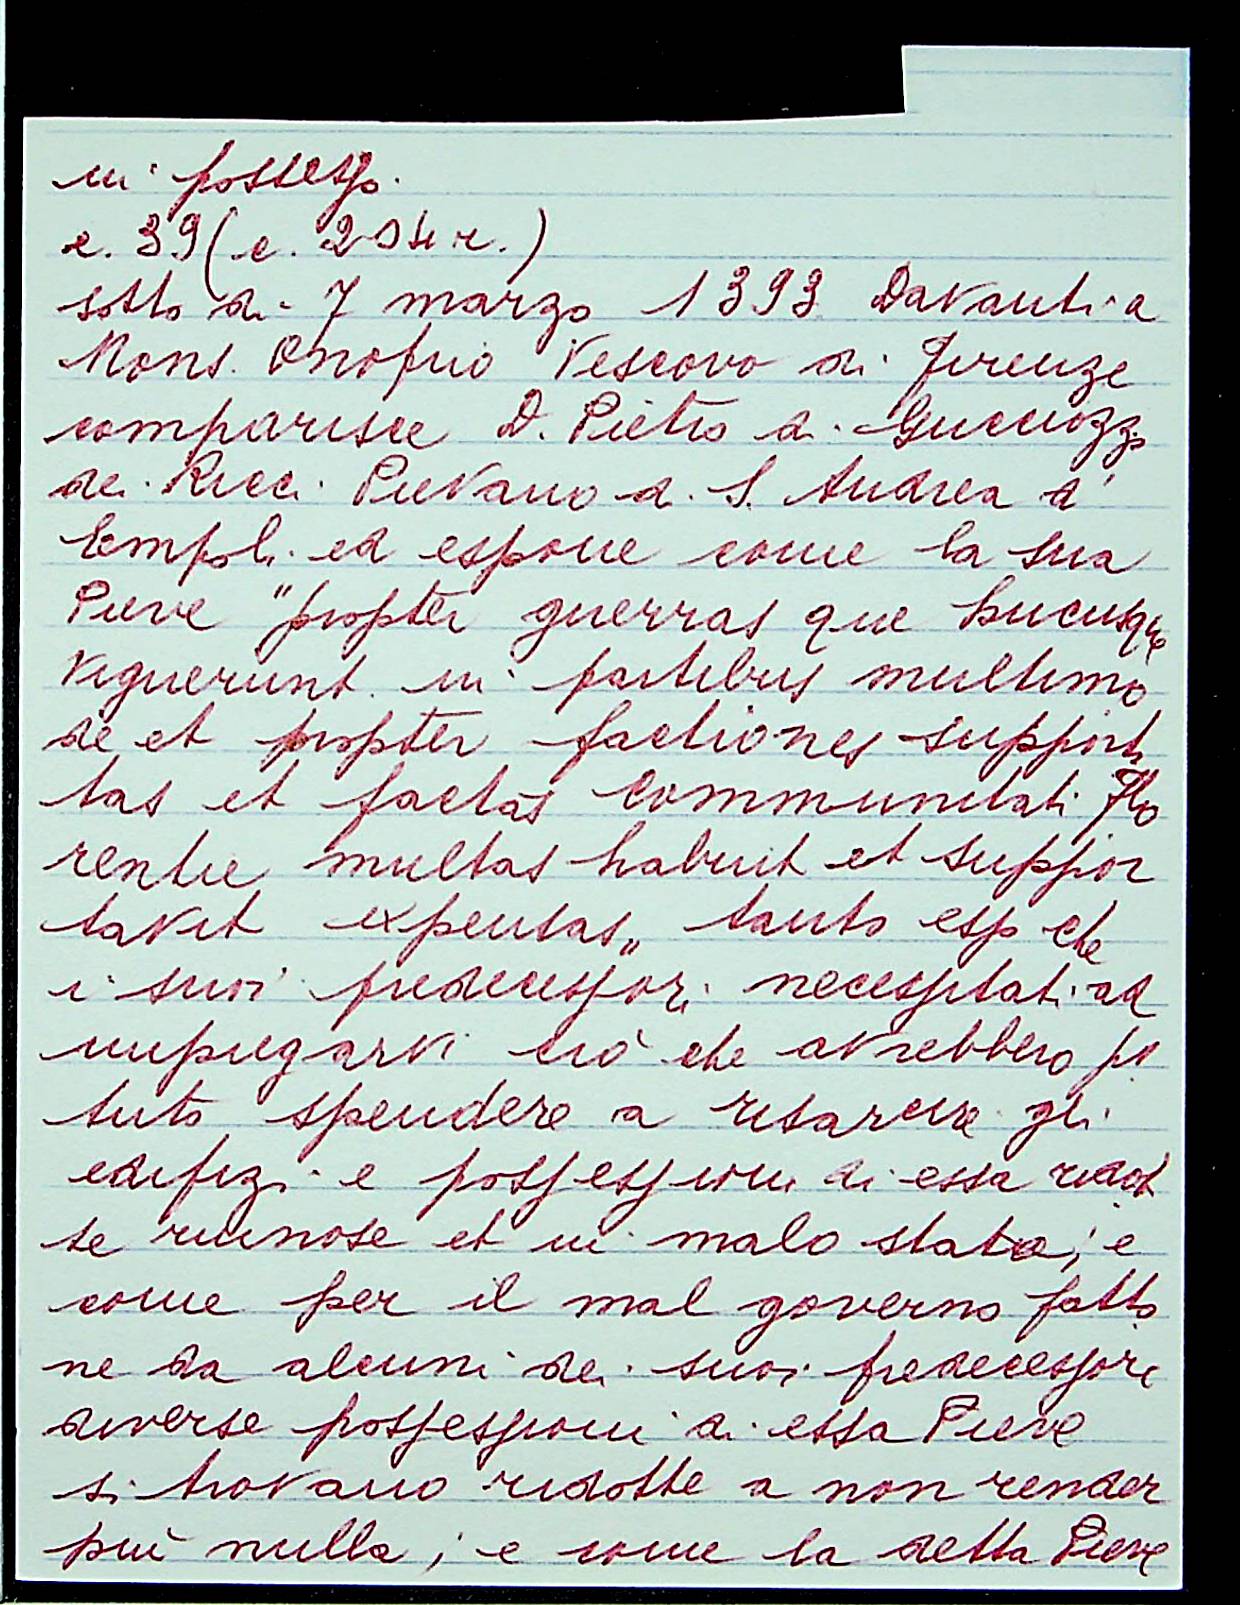 in possesso.
c. 39 (c. 204 r.)
sotto di 7 marzo 1393 Davanti a
Mons. Onofrio Vescovo di Firenze
comparisce D. Pietro di Gucciozzo
dei Ricci Pievano di S. Andrea d'
Empoli ed espone come la sua
Pieve "propter guerras que hucusque
viguerunt in partibus multimo
de et propter factiones support
tas et factas Communitati Flo
rentie multas habuit et suppor
tavit expensas„ tanto esp che
i suoi predecessori necessitati ad
impiegarvi ciò che avrebbero po
tuto spendere a risarcire gli
edifizi e possessioni di essa ridot
te ruinose et in malo stato; e
come per il mal governo fatto
ne da alcuni dei suoi predecessori
diverse possessioni di essa Pieve
si trovano ridotte a non render
più nulla; e come la detta Pieve